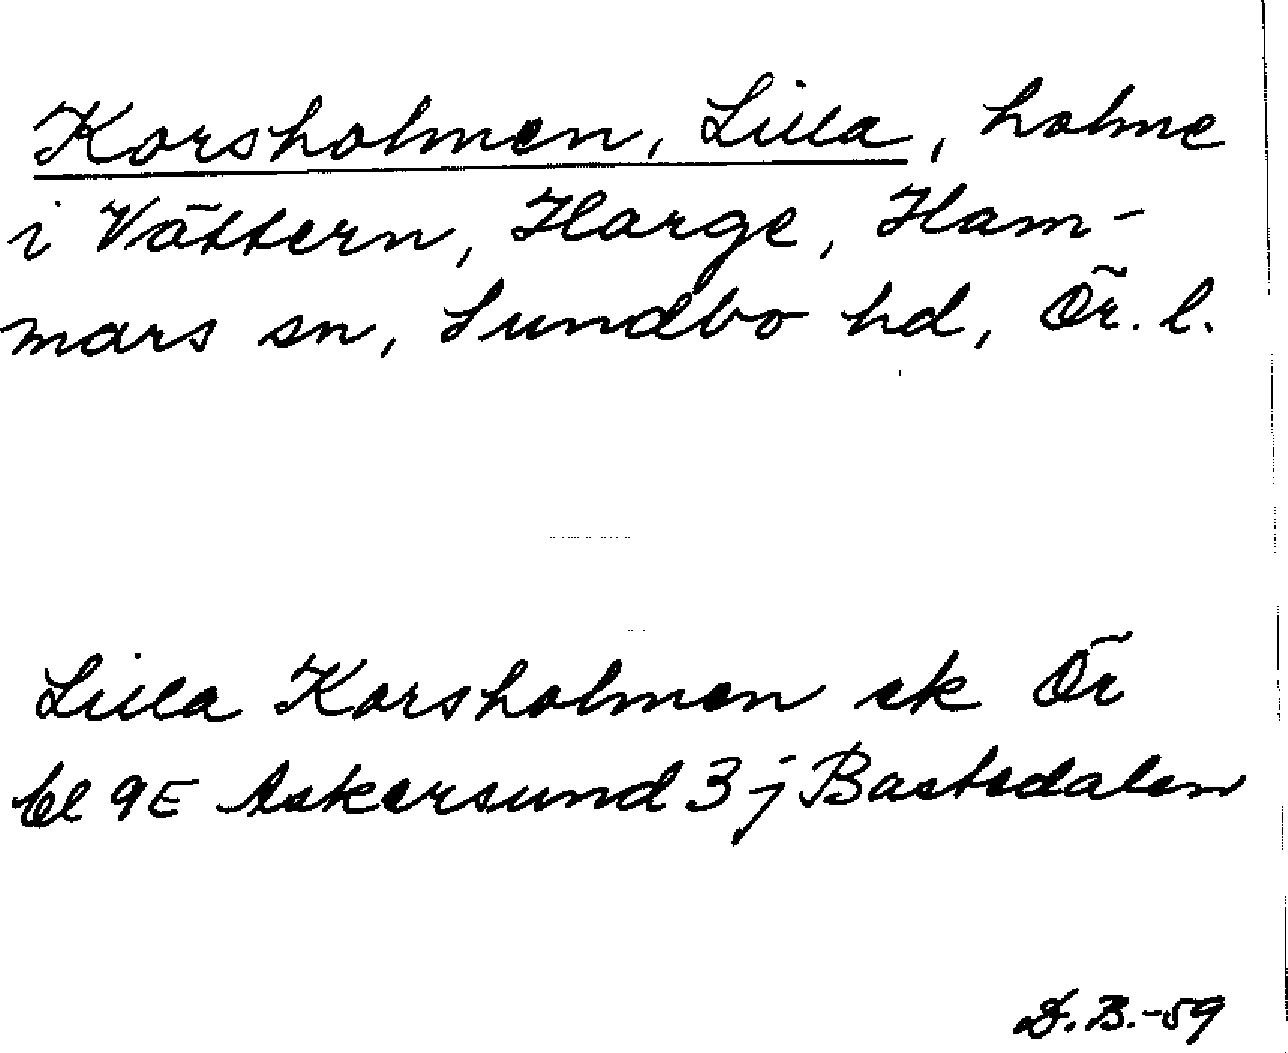 Korsholmen, Lilla, holme
i Vättern, Harge, Ham-
mars sn, Sundbo hd, Ör. l.
Lilla Korsholmen ek Ör
bl 9E Askersund 3j Bastedalen
D.B.-59